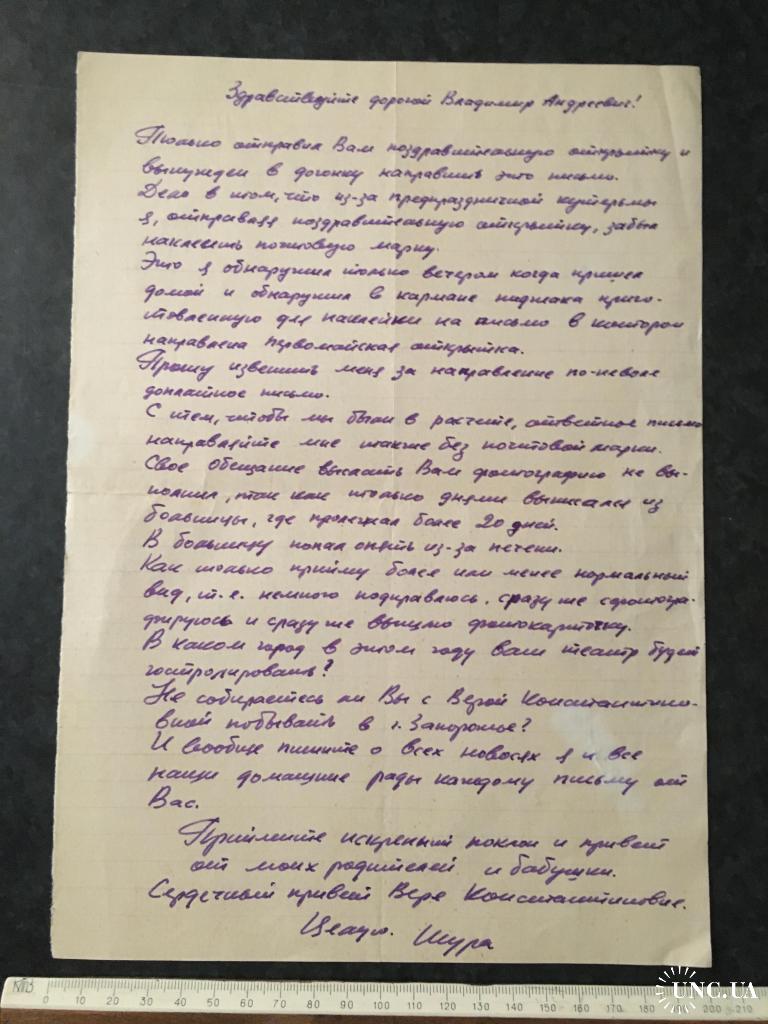 Здравствуйте дорогой Владимир Андреевич!
Только отправил Вам поздравительную открытку и
вынужден в догонку направить это письмо.
Дело в том, что из-за предпраздничной кутерьмы
я, отправляя поздравительную открытку, забыл
наклеить почтовую марку.
Это я обнаружил только вечером когда пришел
домой и обнаружил в кармане пиджака приго-
товленную для наклейки на письмо в котором
направлена первомайская открытка.
Прошу извенить меня за направление по-неволе
доплатное письмо.
С тем, чтобы мы были в расчете, ответное письмо
направляйте мне также без почтовой марки.
Свое обещание выслать Вам фотографию не вы-
полнил, так как только днями выписался из
больницы, где пролежал более 20 дней.
В больницу попал опять из-за печени.
Как только прийму более или менее нормальный
вид, т.е. немного подправлюсь, сразу же сфотогра-
фируюсь и сразу же вышлю фотокарточку.
В каком город в этом году ваш театр будет
гастролировать?
Не собираетесь ли Вы с Верой Константино-
вной побывать в г. Запорожье?
И вообще пишите о всех новосях я и все
наши домашние рады каждому письму от
Вас.
Приймите искренний поклон и привет
от моих родителей и бабушки.
Сердечный привет Вере Константиновне.
Целую. Шура
КПЗ
0 10 20 30 40 50 60 70 80 90 100 110 120 130 140 150 160 170 180 190 200 210
UNC.UA